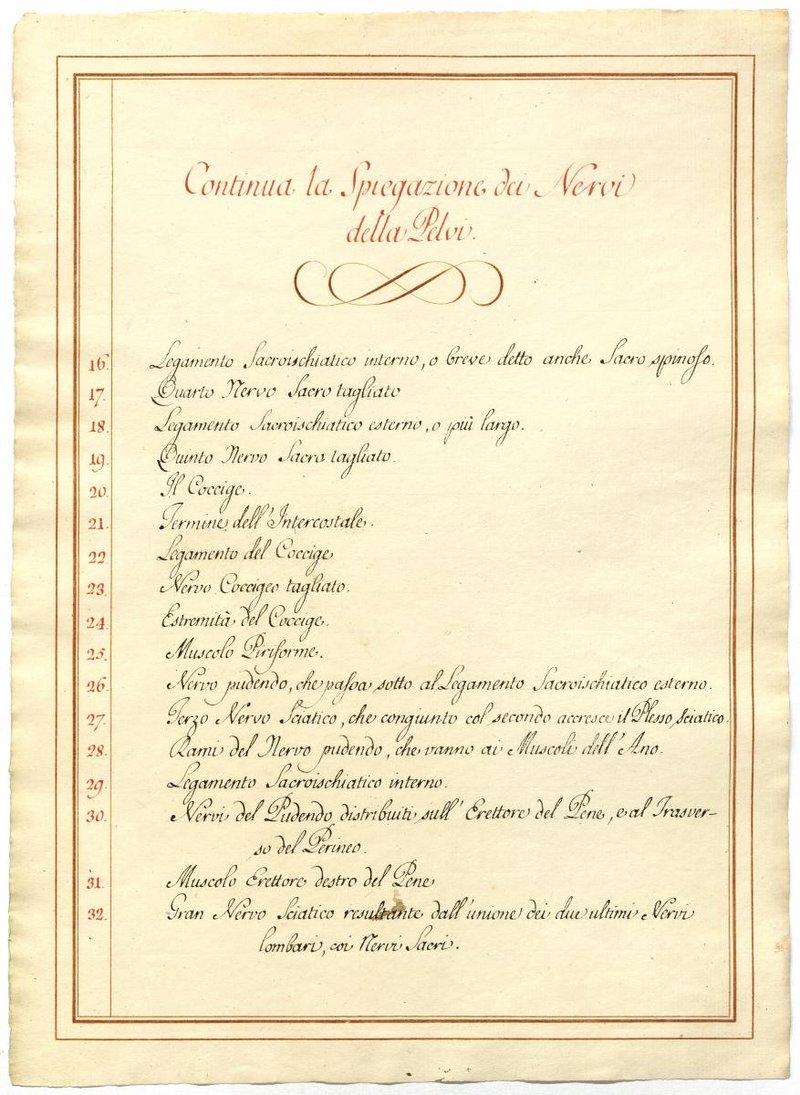 Continua la Spiegazione dei Nervi
della Pelvi.
16. Legamento Sacroischiatico interno, o breve detto anche Sacro spinoso.
17. Quarto Nervo Sacro tagliato
18. Legamento Sacroischiatico esterno, o più largo.
19. Quinto Nervo Sacro tagliato.
20. Il Coccige.
21. Termine dell'Intercostale.
22 Legamento del Coccige
23. Nervo Coccigeo tagliato.
24. Estremità del Coccige.
25. Muscolo Piriforme.
26. Nervo pudendo, che passa sotto al Legamento Sacroischiatico esterno.
27. Terzo Nervo Sciatico, che congiunto col secondo accresce il Plesso Sciatico.
28. Rami del Nervo pudendo, che vanno ai Muscoli dell'Ano.
29. Legamento Sacroischiatico interno.
30. Nervi del Pudendo distribuiti sull'Erettore del Pene, e al Trasver-
so del Perineo.
31. Muscolo Erettore destro del Pene
32. Gran Nervo Sciatico resultante dall'unione dei due ultimi Nervi
lombari, coi Nervi Sacri.